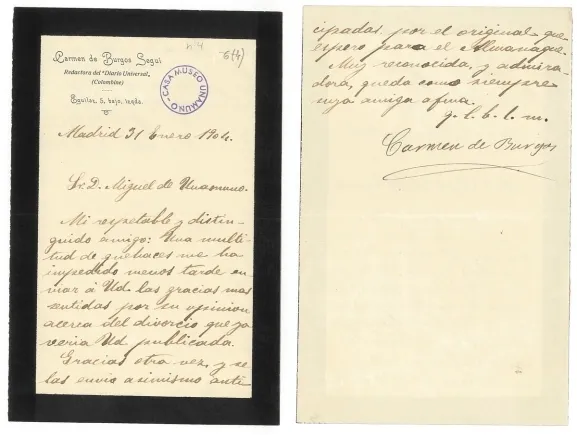 Carmen de Burgos Seguí
Redactora del "Diario Universal"
(Colombine)
Eguilaz, 5, bajo, izqda.
6(4)
CASA MUSEO UNAMUNO
Madrid 31 Enero 1904.
Sr. D. Miguel de Unamuno.
Mi respetable y distin-
guido amigo: Una multi-
tud de quehaces me ha
impedido menos tarde en-
viar á Ud. las gracias mas
sentidas por su opinion
acerca del divorcio que ya
veria Ud publicada.
Gracias otra vez, y se
las envio asimismo anti-
cipadas por el original que
espero para el Almanaque.
Muy reconocida, y admira-
dora, queda como siempre
suya amiga afma.
q. l. b. l. m.
Carmen de Burgos